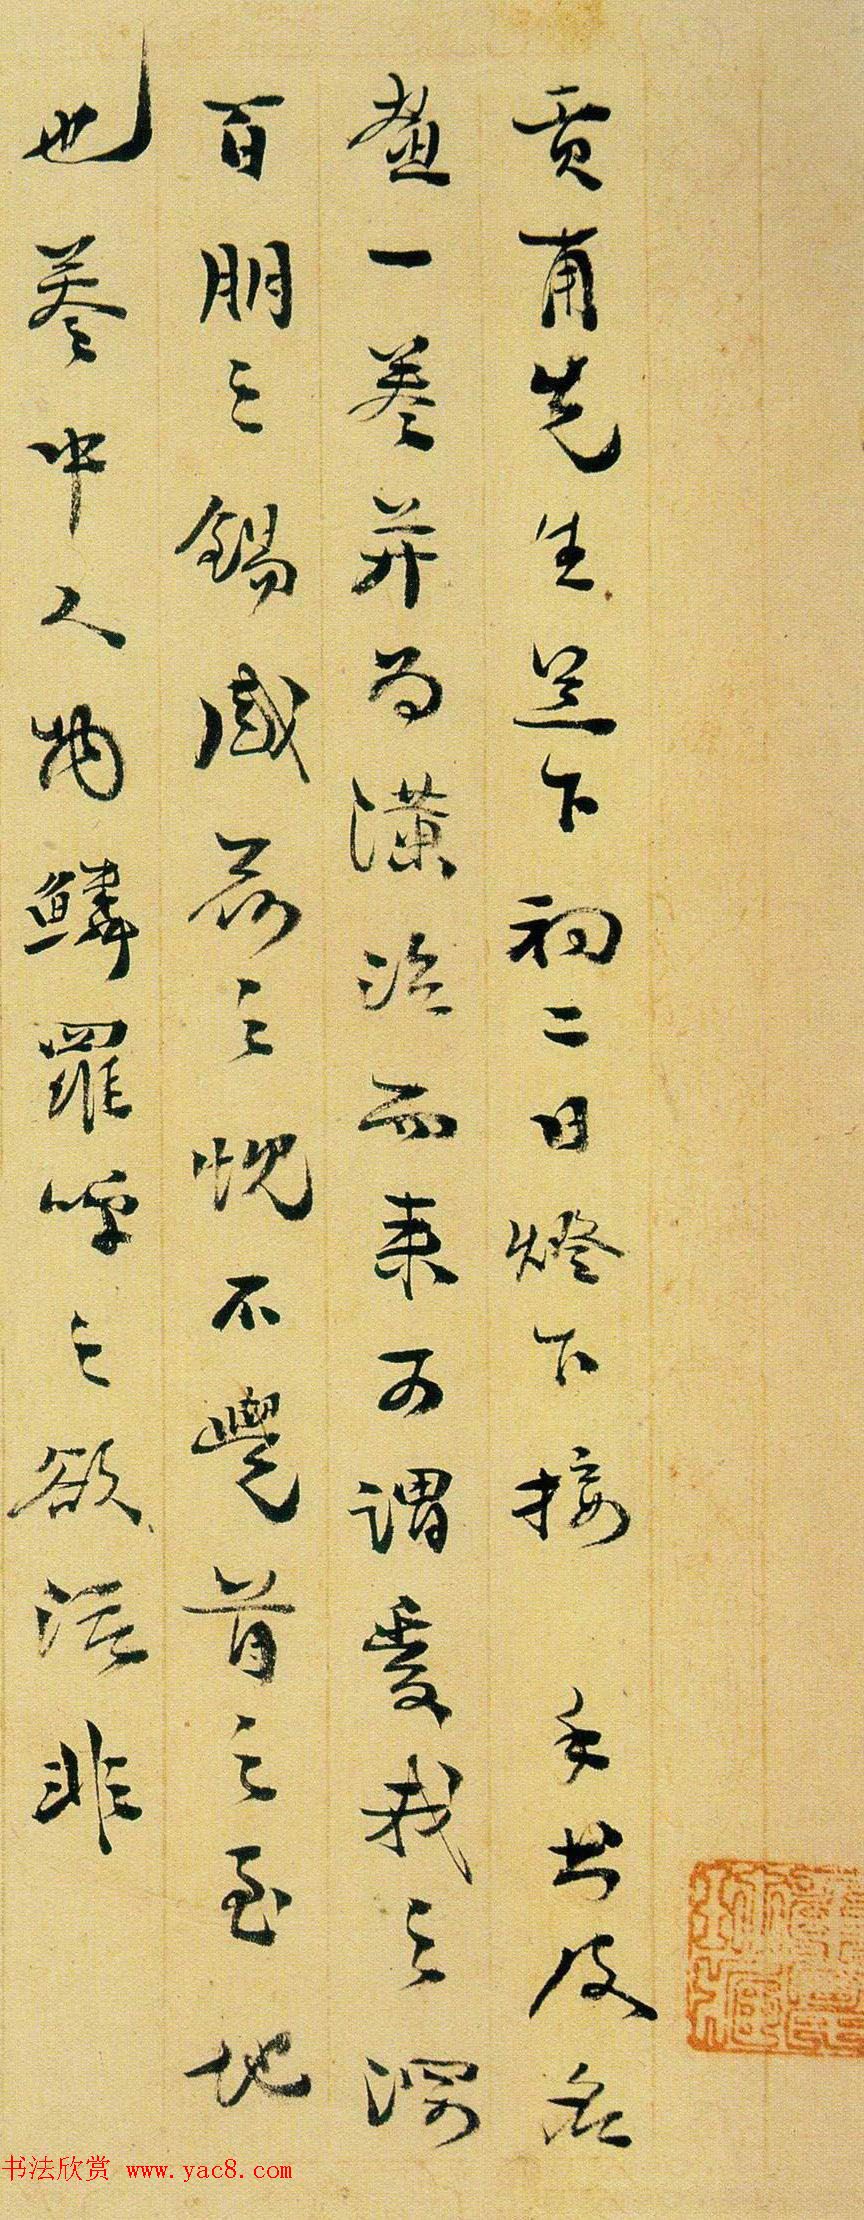 贡甫先生足下初二日燈下接 手書及名
畫一卷并為潢治而來可謂愛我之深
百朋之錫感荷之忱不覺首之至地
也卷中人物鱗羅呼之欲活非
书法欣赏 www.yac8.com